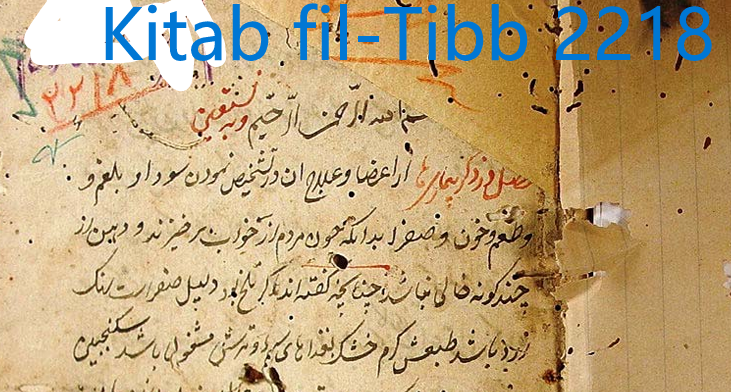 Kitab fil-Tibb 2218
۲۲۱۸
بسم الله الرحمن الرحیم وبه نستعین
فصل در ذکر بیماریها از اعضا و علاج ان و تشخیص نمودن سودا و بلغم و
و طعم و خون و صفرا بدانکه چون مردم از خواب برخیزند و دهن از
چند کونه خالی نباشد چنانچه کفته اند اکر تلخ بود دلیل صفراست رنک
زرد باشد طبعش کرم خشک بغذاهای سرد و ترشی مشغول باشد سکنجبین